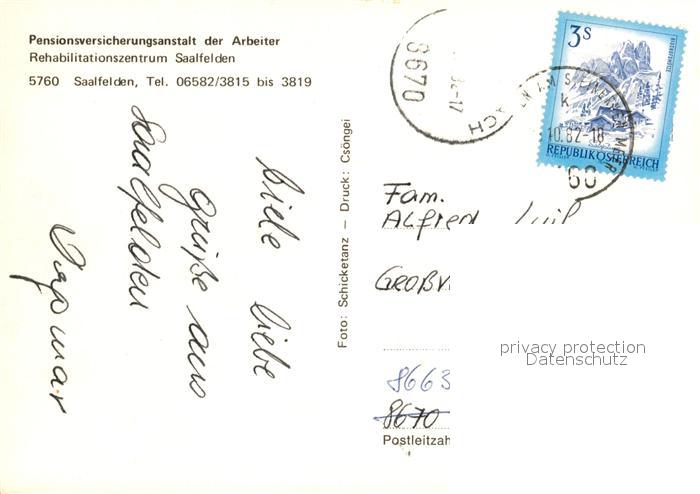 Pensionsversicherungsanstalt der Arbeiter
Rehabilitationszentrum Saalfelden
5760 Saalfelden, Tel. 06582/3815 bis 3819
Viele liebe
Grüße aus
Saalfelden
Dagmar
Foto: Schicketanz — Druck: Csöngei
8670
3 S
REPUBLIK ÖSTERREICH
AM STEINERNEN MEER
10.82-18
k
Fam.
Alfred
GROßV
8663
8670
Postleitzah
privacy protection
Datenschutz